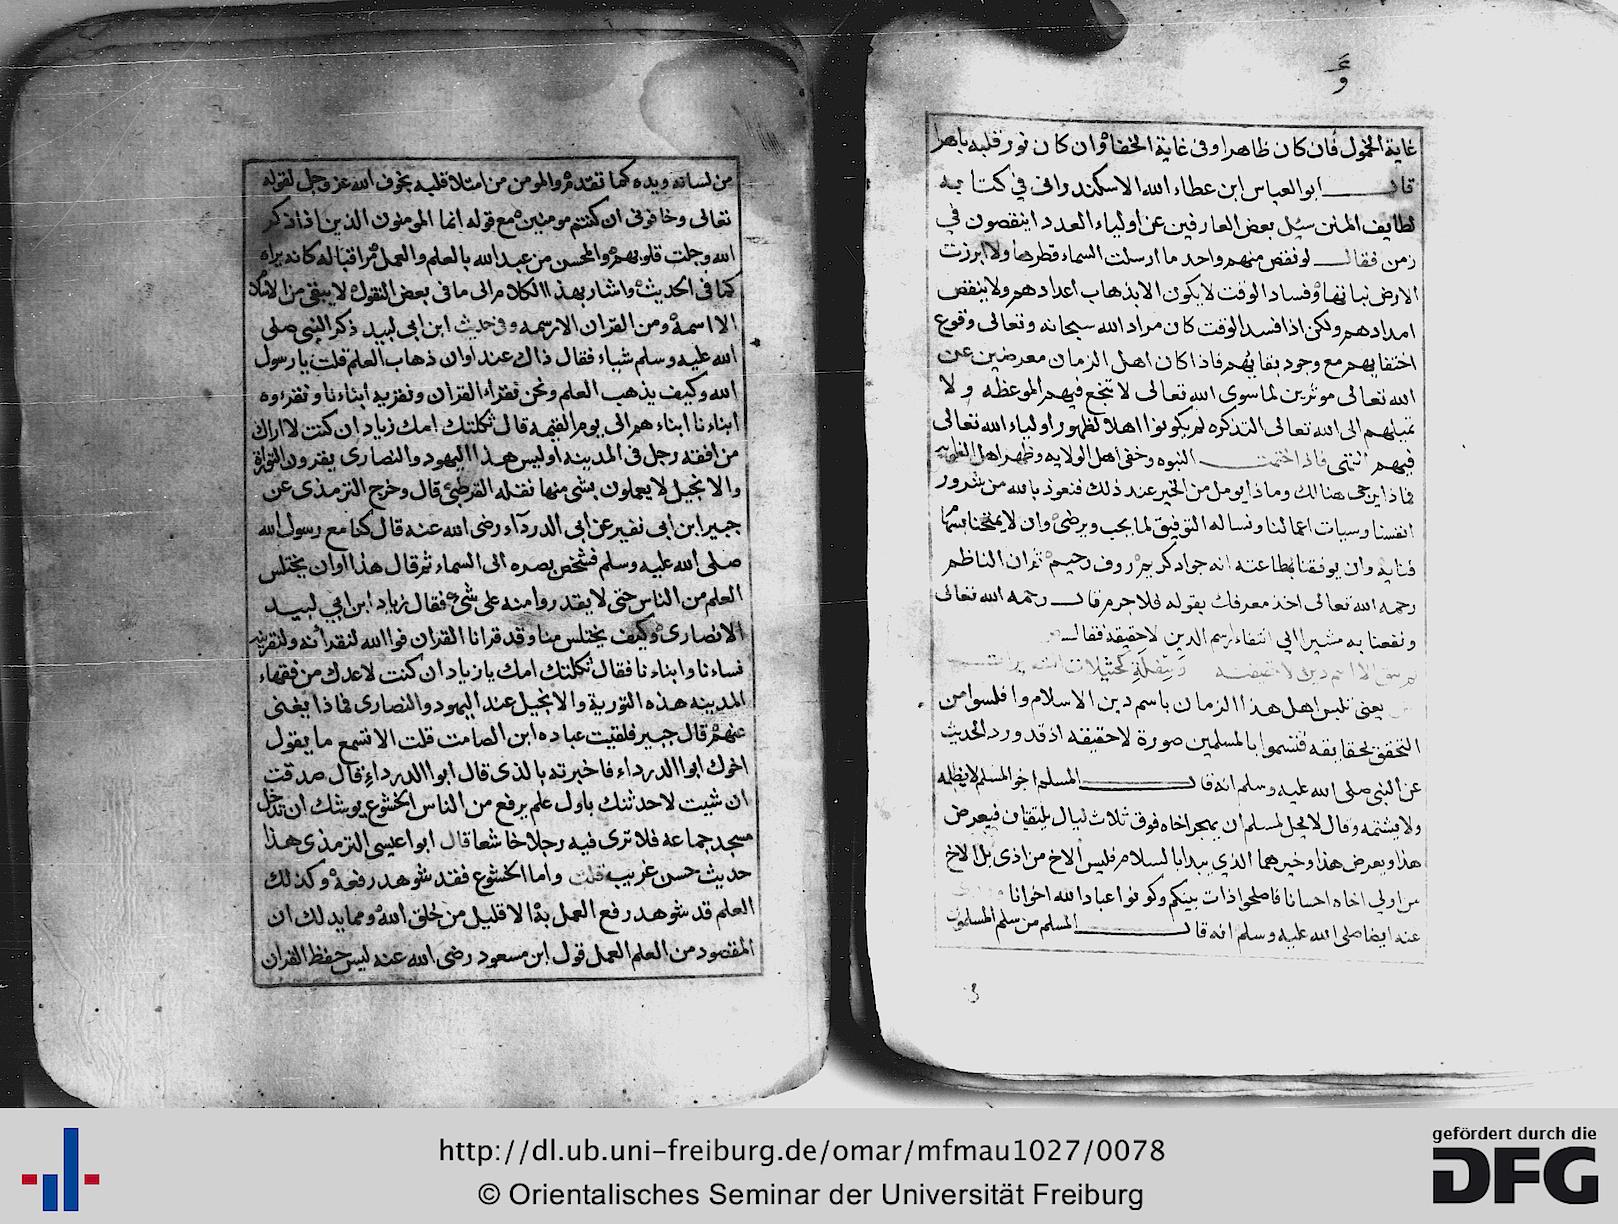 غاية الخمول فان كان ظاهرا وفى غاية الخفا وان كان نور قلبه باهرا
قال ابو العباس ابن عطاء الله الاسكندرانى في كتابه
لطايف المنن سيل بعض العارفين عن اولياء العدد اينقصون في
زمن فقال لو نقص منهم واحد ما ارسلت السماء قطرها ولا ابرزت
الارض نباتها وفساد الوقت لا يكون الا بذهاب اعدادهم ولا ينقص
امدادهم ولكن اذا فسد الوقت كان مراد الله سبحانه وتعالى وقوع
اختفايهم مع وجود بقايهم فاذا كان اهل الزمان معرضين عن
الله تعالى موثرين لما سوى الله تعالى لا تنجع فيهم الموعظه ولا
تميلهم الى الله تعالى التذكره لم يكونوا اهلا لظهور اولياء الله تعالى
فيهم انتهى فاذا اختمت النبوه وخفى اهل الولايه وظهر اهل
فماذا يرجى هنالك وماذا يومل من الخير عند ذلك فنعوذ بالله من شرور
انفسنا وسيات اعمالنا ونساله التوفيق لما يحب ويرضى وان لا يمتحنا
وان يوفقنا بطاعته انه جواد كريم روف رحيم ثم ان الناظم
رحمه الله تعالى اخذ معرفاك بقوله فلا جرم قال رحمه الله تعالى
ونفعنا به مشيرا الى انتفاء رسم الدين لا حقيقه فقال
لم يبق الا اسم دين لا حقيقة
يعنى تلبس اهل هذا الزمان باسم دين الاسلام وافلسوا من
التحقق بحقايقه فتسموا بالمسلمين صورة لا حقيقه اذ قد ورد الحديث
عن النبى صلى الله عليه وسلم انه قال المسلم اخو المسلم لا يظلمه
ولا يشتمه وقال لا يحل لمسلم ان يهجر اخاه فوق ثلاث ليال يلتقيان فيعرض
هذا ويعرض هذا وخيرهما الذي يبدا بالسلام فليس الاخ من اذى بل الاخ
من اولى اخاه احسانا فاصلحوا ذات بينكم وكونوا عباد الله اخوانا
عنه ايضا صلى الله عليه وسلم انه قال المسلم من سلم المسلمون
من لسانه ويده كما تقدم والمومن من امتلا قلبه بخوف الله عز وجل لقوله
تعالى وخافونى ان كنتم مومنين مع قوله انما المومنون الذين اذا ذكر
الله وجلت قلوبهم والمحسن من عبد الله بالعلم والعمل مراقبا له كانه يراه
كما فى الحديث واشار بهذا الكلام الى ما فى بعض النقول لا يبقى من الاسلام
الا اسمه ومن القران الا رسمه وفى حديث ابن ابى لبيد ذكر النبى صلى
الله عليه وسلم شياء فقال ذاك عند اوان ذهاب العلم قلت يا رسول
الله وكيف يذهب العلم ونحن نقراء القران ونقريه ابناءنا ونقرءوه
ابناءنا ابناءهم الى يوم القيمه قال ثكلتك امك زياد ان كنت لاراك
من افقه رجل فى المدينه اوليس هذا اليهود والنصارى يقرون التوراة
والانجيل لا يعملون بشى منها نقله القرطبى قال وخرج الترمذى عن
جبير ابن ابى نفير عن ابى الدرداء رضى الله عنه قال كنا مع رسول الله
صلى الله عليه وسلم فشخص بصره الى السماء ثم قال هذا اوان يختلس
العلم من الناس حتى لا يقدروا منه على شى فقال زياد ابن ابي لبيد
الانصارى وكيف يختلس منا وقد قرانا القران فوالله لنقرأنه ولنقرينه
نساءنا وابناءنا فقال ثكلتك امك يا زياد ان كنت لاعدك من فقهاء
المدينه هذه التورية والانجيل عند اليهود والنصارى فماذا يغنى
عنهم قال جبير فلقيت عباده ابن الصامت قلت الا تسمع ما يقول
اخوك ابوا الدرداء فاخبرته بالذى قال ابوا الدرداء قال صدقت
ان شيت لاحدثنك باول علم يرفع من الناس الخشوع يوشك ان تدخل
مسجد جماعه فلا ترى فيه رجلا خاشعا قال ابوا عيسى الترمذى هذا
حديث حسن غريب قلت واما الخشوع فقد شوهد رفعه وكذلك
العلم قد شوهد رفع العمل به الا قليل من خلق الله ومما يدلك ان
المقصود من العلم العمل قول ابن مسعود رضى الله عنه ليس حفظ القران
http://dl.ub.uni-freiburg.de/omar/mfmau1027/0078
© Orientalisches Seminar der Universität Freiburg
gefördert durch die
DFG